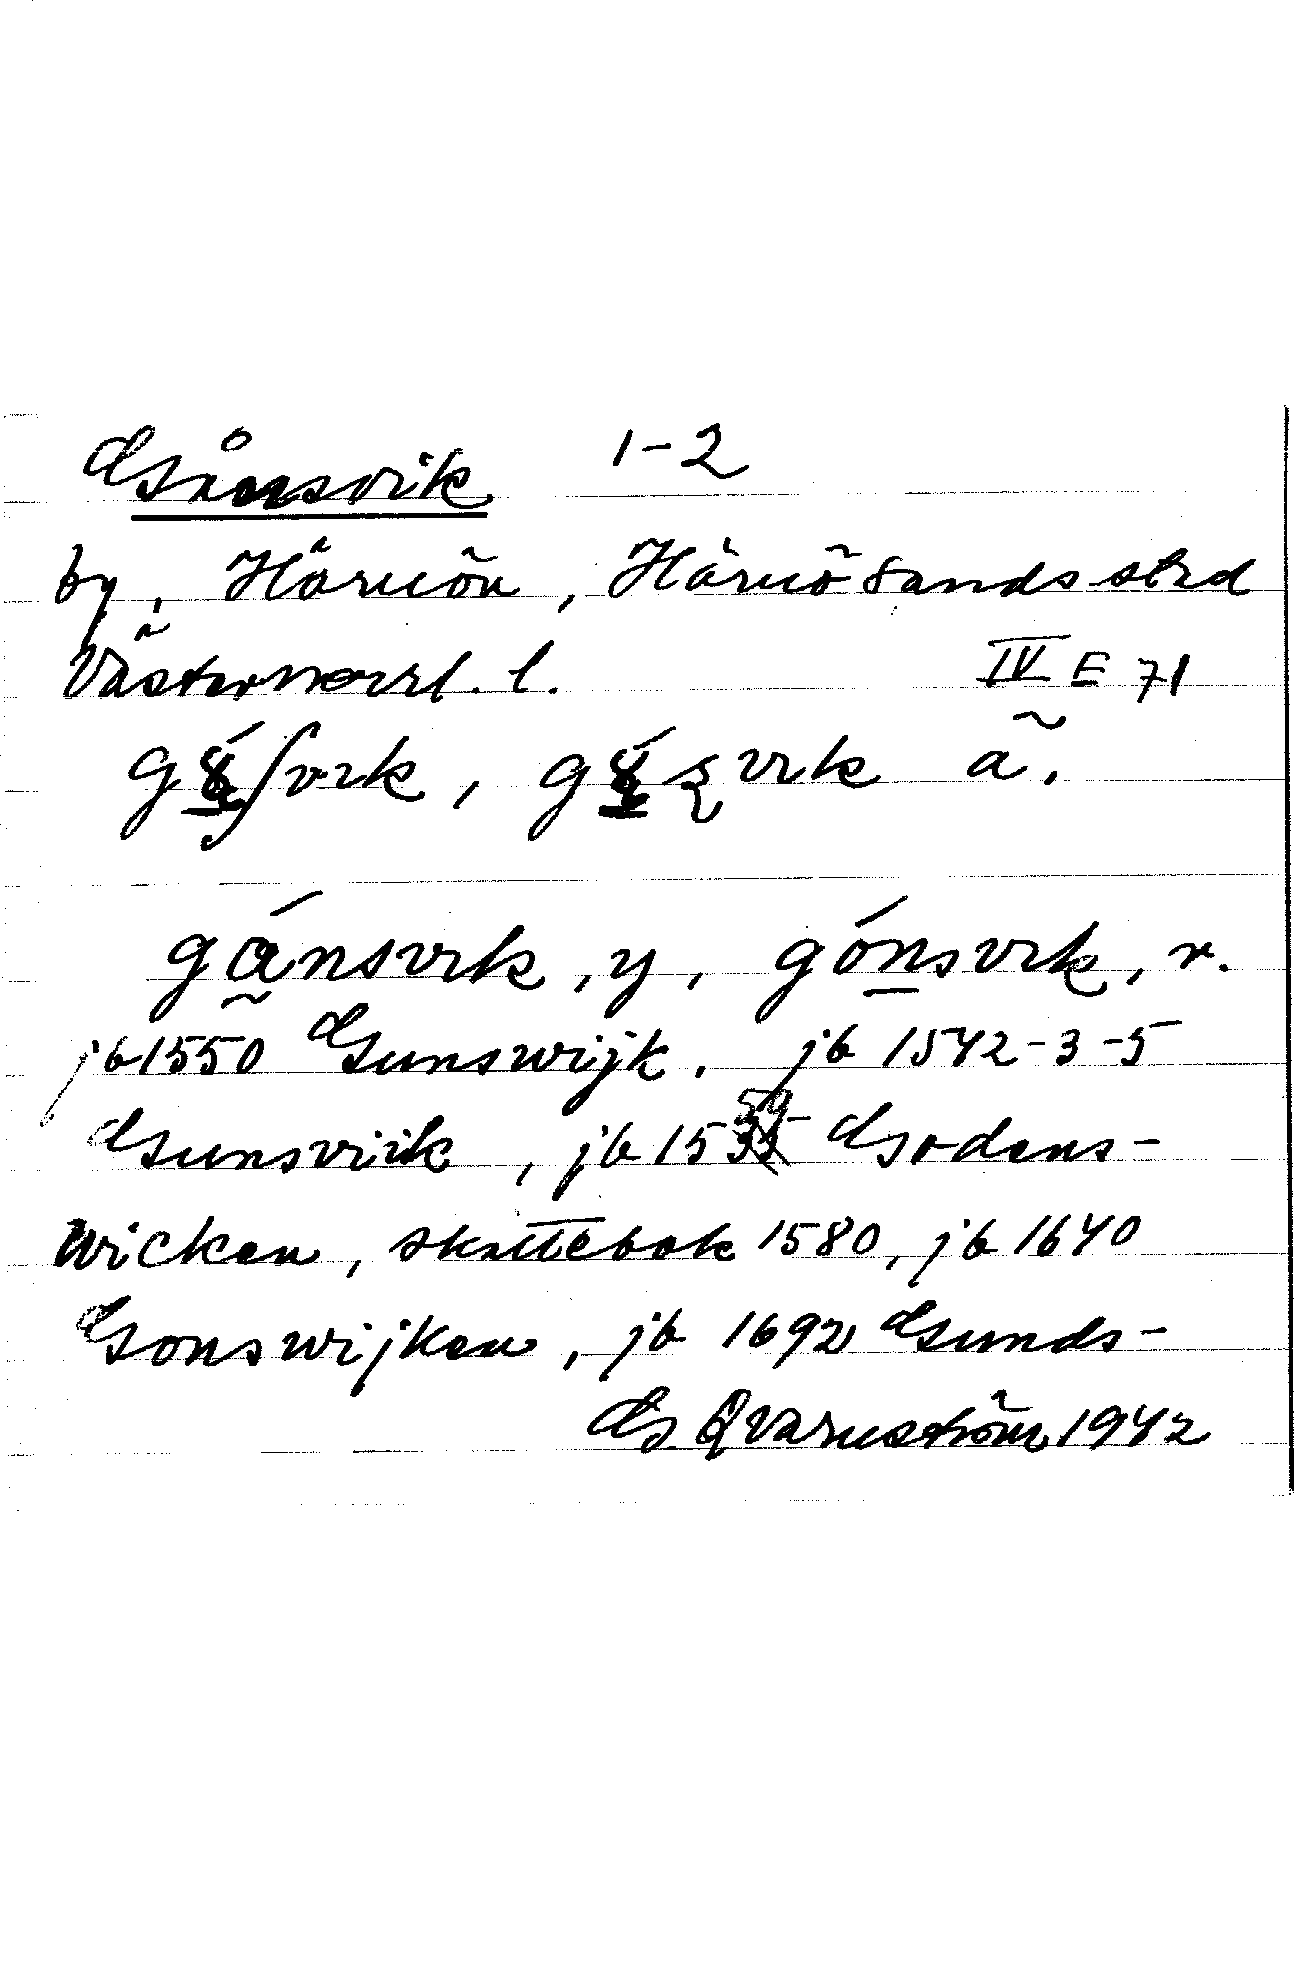 Gånsvik 1-2
by, Härnön, Härnösands strd
Västernorrl. l. IV E 71
ã.
gånsvik, y, gónsvik, r.
jb 1550 Gunswijk. jb 1542-3-5
Gunsviik, jb 1559 Godens-
wicken, skattebok 1580, jb 1640
Gonswijken, jb 1692 Gunds-
G Qvarnström 1942